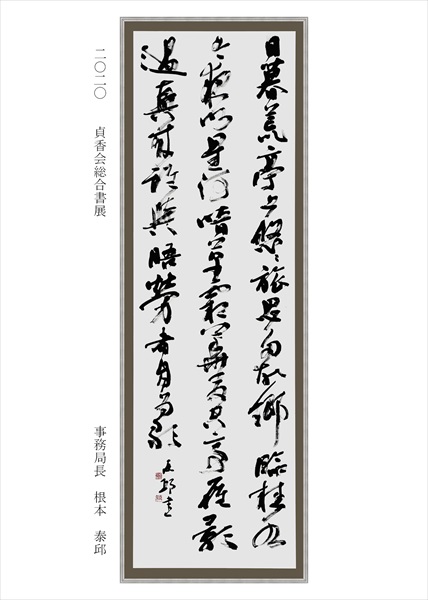 日暮荒亭上悠〻旅思多故鄉臨桂水
今夜渺星河暗草霜華發空亭雁影
過興來誰與晤勞者自為歌 泰邱
二〇二〇 貞香会総合書展
事務局長 根本 泰邱